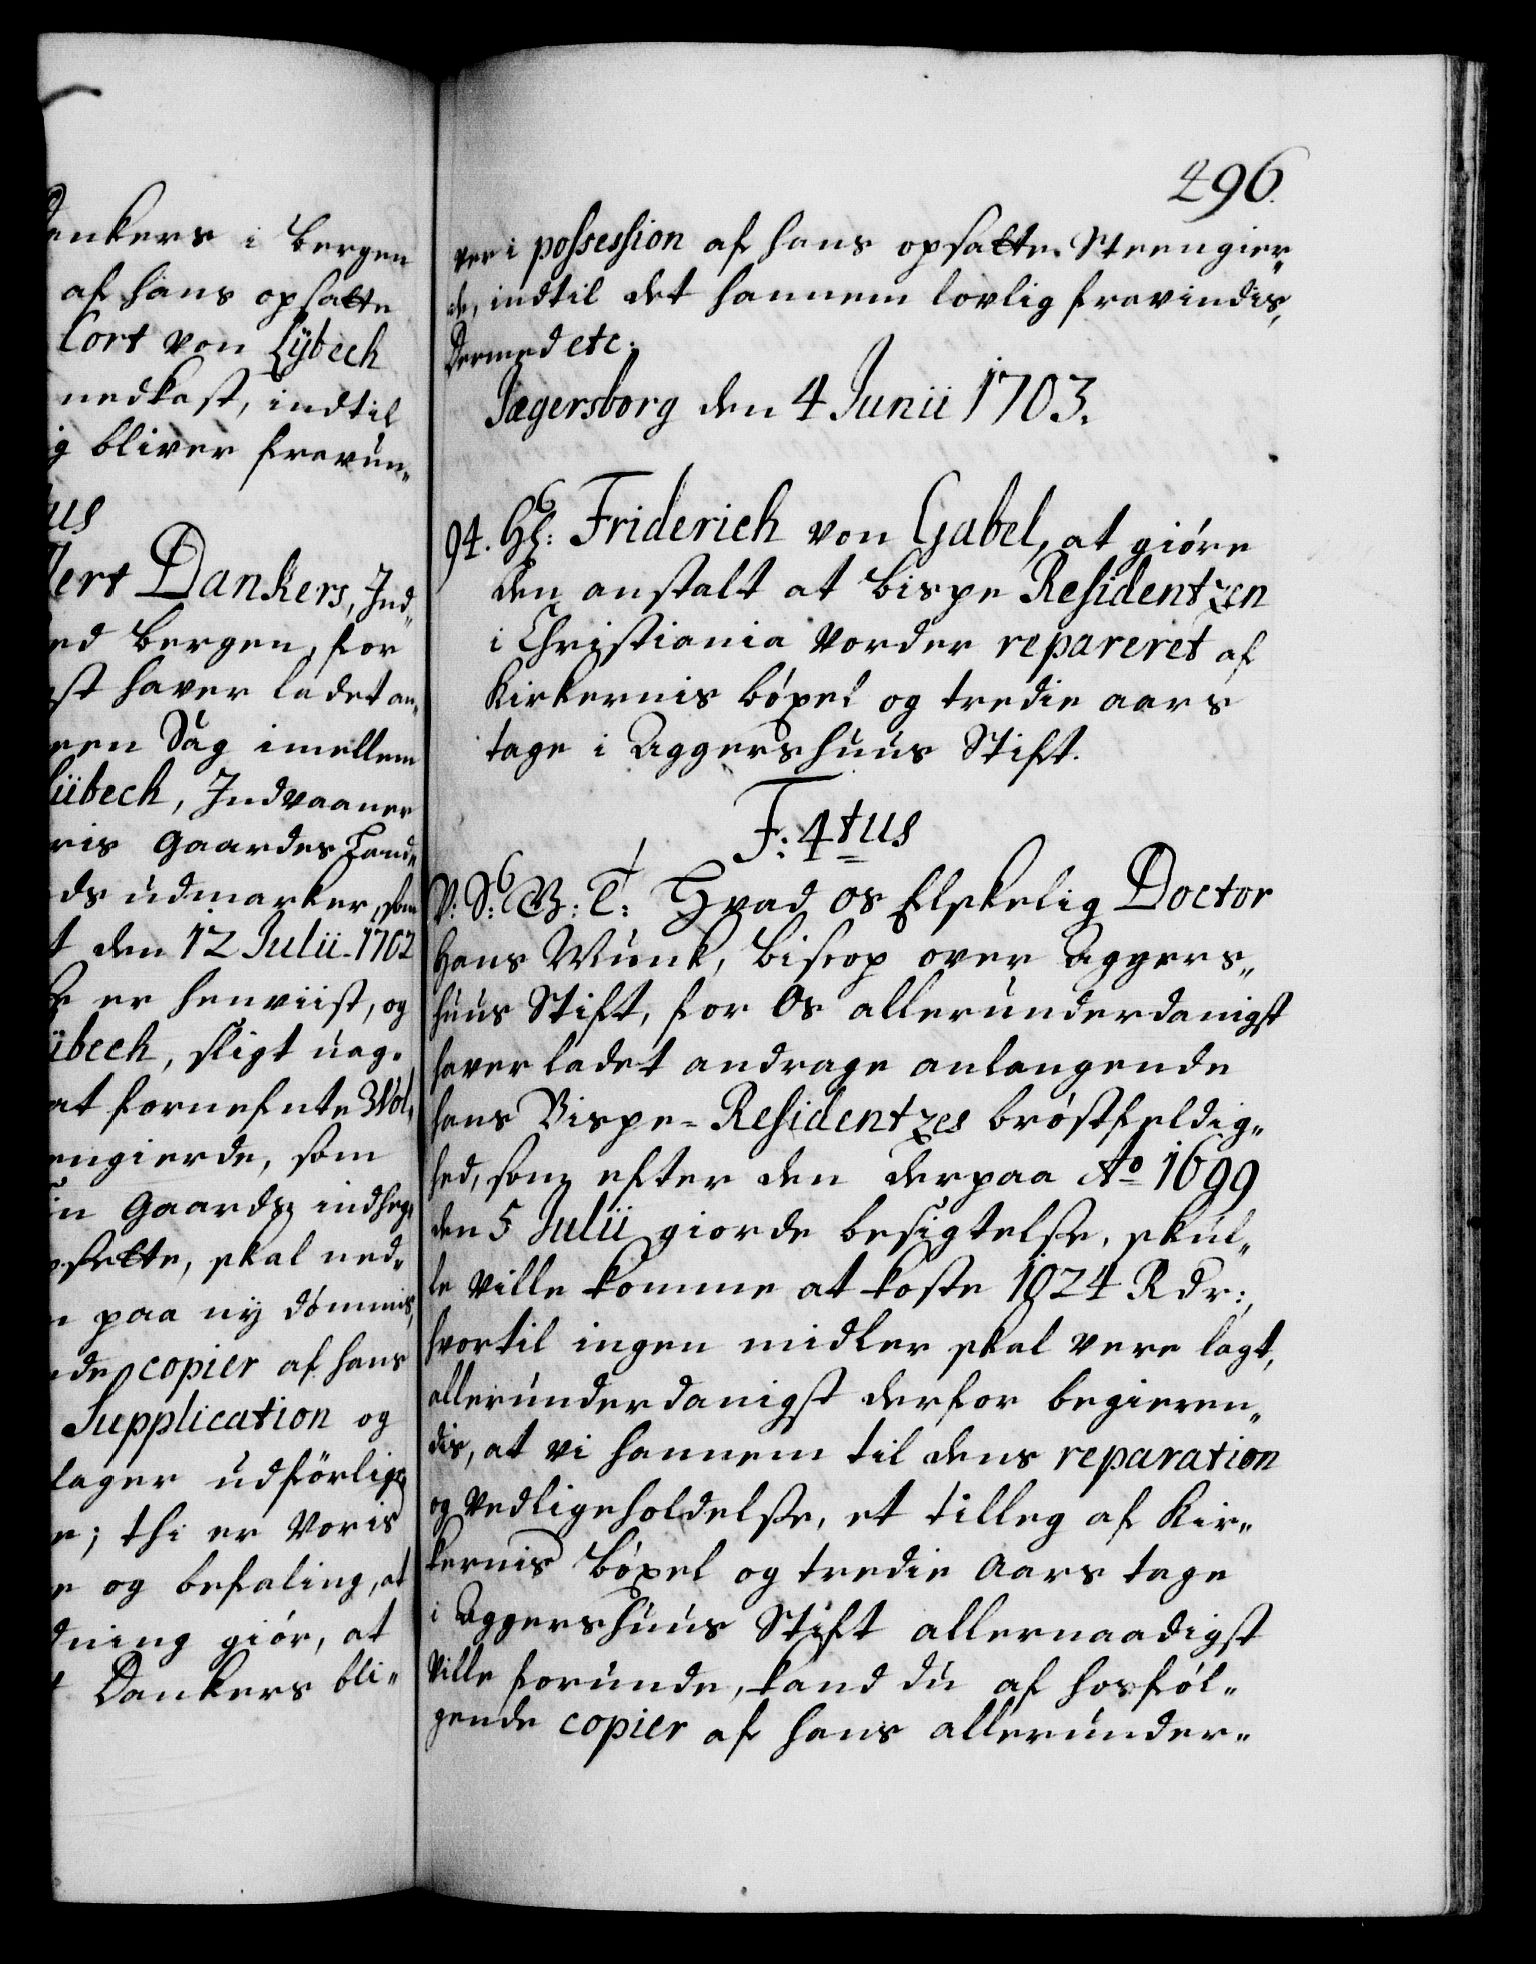 ankers i Bergen
af hans opsatte
Cort von Lybech
nedkast, indtil
g bliver fravun„
us
lert Dankers, Ind„
ed Bergen, for
st haver ladet an„
een Sag imellem
übech, Indvaaner
ris Gaardes Land„
ds udmarker, som
t den 12 Julii 1702
er henviist, og
übech, sligt uag„
at fornefnte Wol„
engierde, som
in Gaards indheg„
sette, skal ned„
paa ny dömmis,
de copier af hans
Supplication og
lager udförlig
e; thi er Voris
e og befaling, at
dning giör, at
Dankers bli„
496.
ver i possession af hans opsatte Steengier„
de, indtil det hannem lovlig fravindis,
Dermed etc:
Jægersborg den 4 Junii 1703.
94. Hl: Friderich von Gabel, at giöre
den anstalt at Bispe Residentzen
i Christiania vorder repareret af
Kirkernis böxel og tredie aars
tage i Aggershuus Stift.
F: 4tus
V: S: G: B: T: Hvad os Elskelig Doctor
Hans Munk, Biscop over Aggers„
huus Stift, for Os allerunderdanigst
haver ladet andrage anlangende
hans Bispe-Residentzes bröstfeldig„
hed, som efter den derpaa Ao 1699
den 5 Julii giorde besigtelse, skul„
le ville komme at koste 1024 Rdr:,
hvortil ingen midler skal vere lagt,
allerunderdanigst derfor begieren„
dis, at vi hannem til dens reparation
og vedligeholdelse, et tilleg af Kir„
kernis böxel og tredie Aars tage
i Aggershuus Stift allernaadigst
ville forunde, kand du af hosföl„
gende copier af hans allerunder„